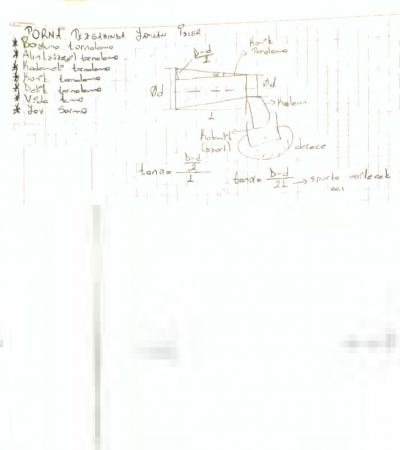 TORNA TEZGAHINDA YAPILAN İŞLER
* Boyuna tornalama
* Alın (yüzey) tornalama
* Kademeli tornalama
* Konik tornalama
* Delik tornalama
* Vida açma
* Yay sarma
D-d
2
Konik
Tornalama
Ød
Ød
l
Kalem
(sport)
derece
tanα = D-d/2 / l
tanα = D-d / 2l → sporta verilecek
açı